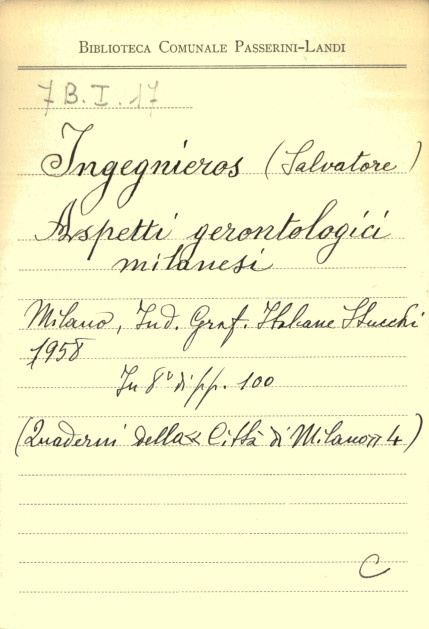 BIBLIOTECA COMUNALE PASSERINI-LANDI
7 B. I. 17
Ingegnieros (Salvatore)
Aspetti gerontologici
milanesi
Milano, Ind. Graf. Italiane Stucchi
1958
In 8° di pp. 100
(Quaderni della « Città di Milano » 4)
C